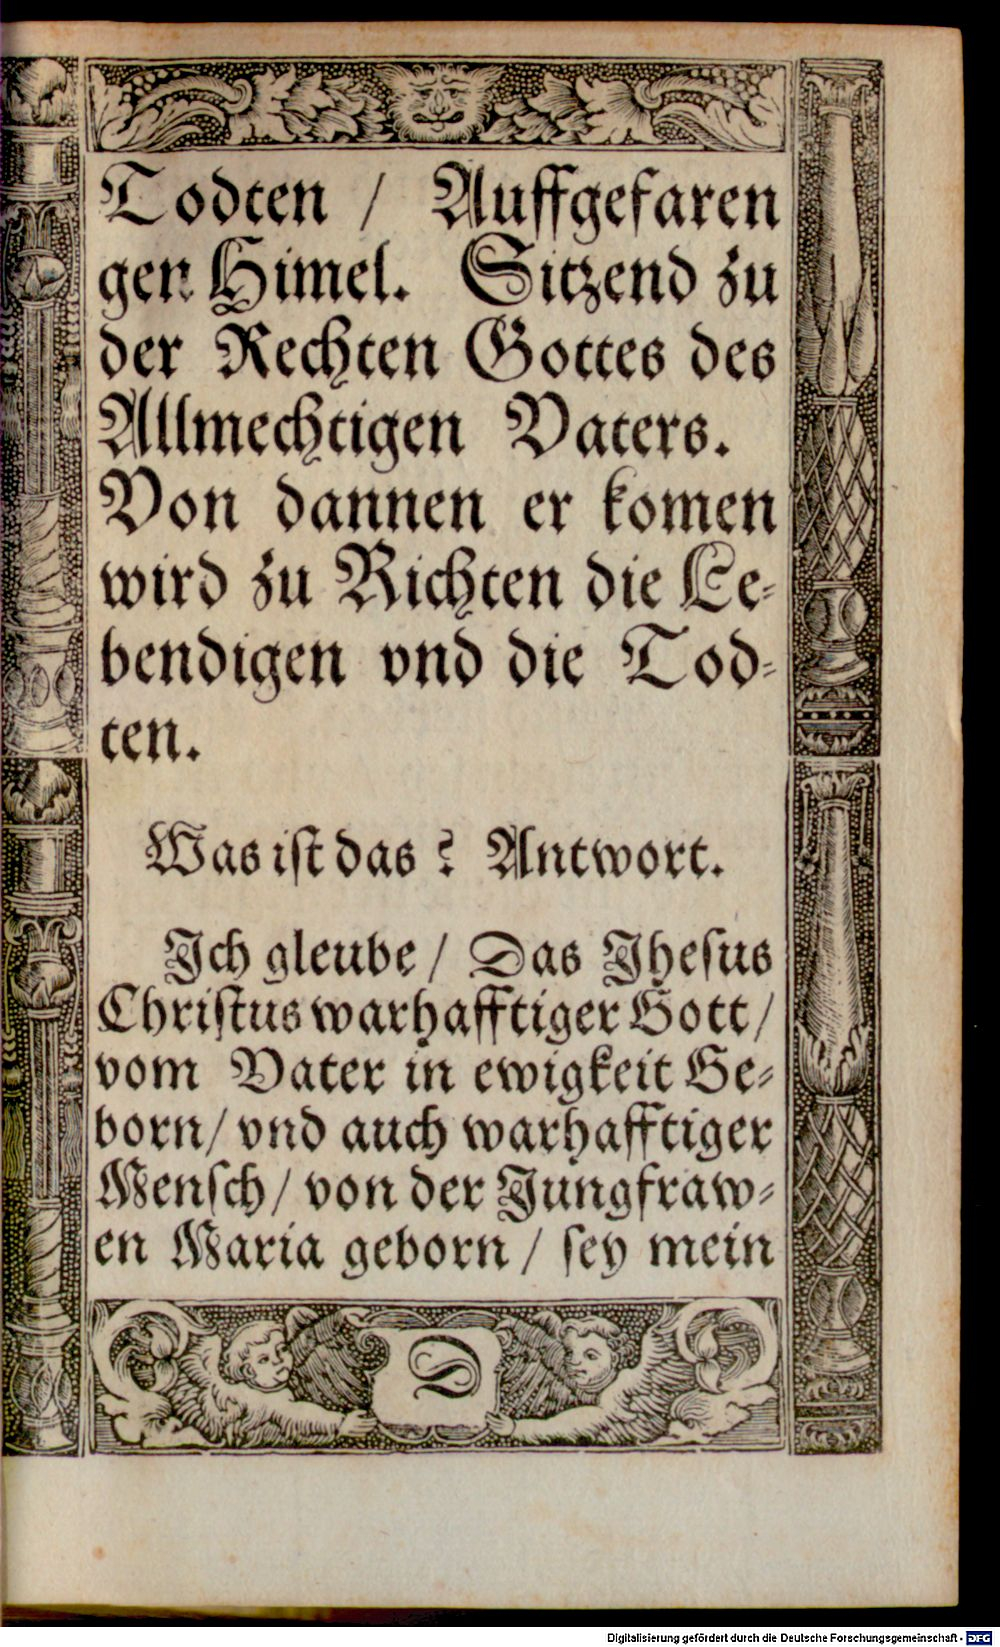 Todten / Auffgefaren
gen Himel. Sitzend zu
der Rechten Gottes des
Allmechtigen Vaters.
Von dannen er komen
wird zu Richten die Le-
bendigen vnd die Tod-
ten.
Was iſt das? Antwort.
Ich gleube / Das Jheſus
Chriſtus warhafftiger Gott /
vom Vater in ewigkeit Ge-
born / vnd auch warhafftiger
Menſch / von der Jungfraw-
en Maria geborn / ſey mein
D
Digitalisierung gefördert durch die Deutsche Forschungsgemeinschaft - DFG